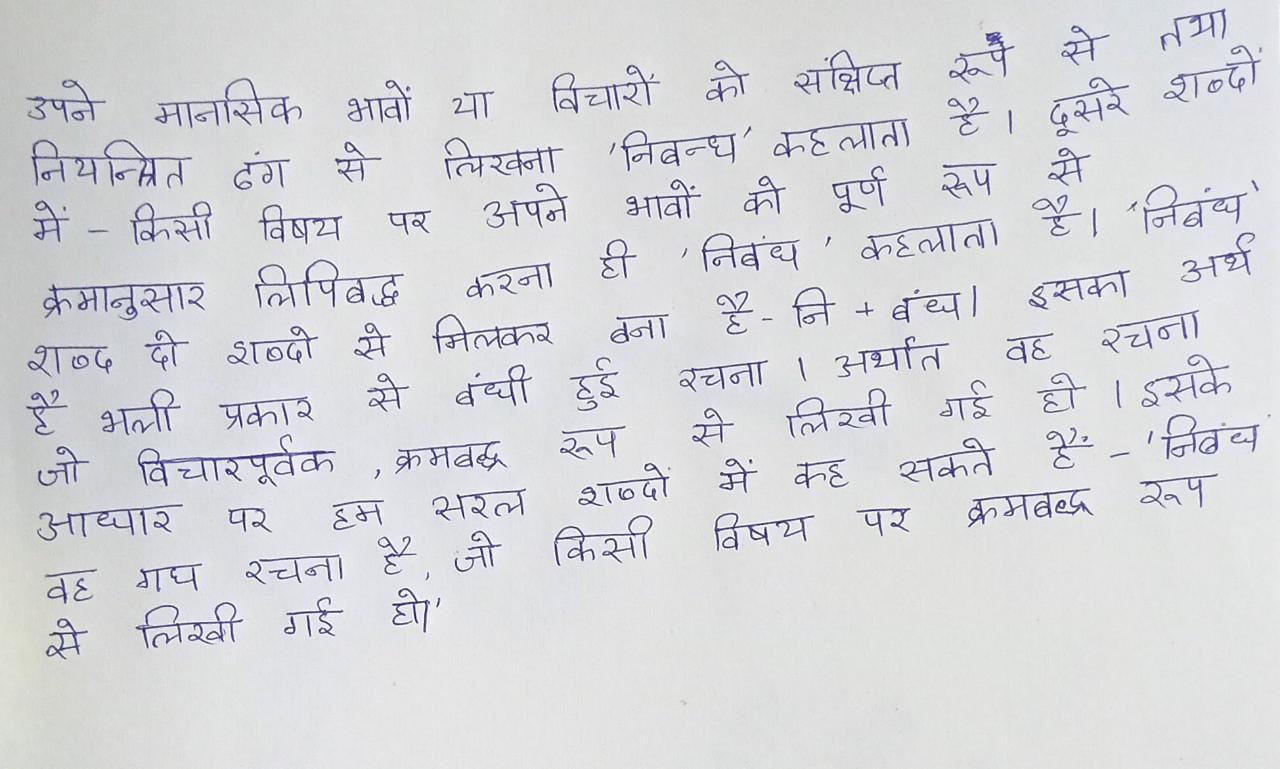 उपने मानसिक भावों या विचारों को संक्षिप्त रूप से तथा
नियन्त्रित ढंग से लिखना 'निबन्ध' कहलाता है। दूसरे शब्दों
में - किसी विषय पर अपने भावों को पूर्ण रूप से
क्रमानुसार लिपिबद्ध करना ही 'निबंध' कहलाता है। 'निबंध'
शब्द दो शब्दो से मिलकर बना है - नि + बंध। इसका अर्थ
है भली प्रकार से बंधी हुई रचना। अर्थात वह रचना
जो विचारपूर्वक, क्रमबद्ध रूप से लिखी गई हो। इसके
आधार पर हम सरल शब्दों में कह सकते हैं - 'निबंध
वह गघ रचना है, जो किसी विषय पर क्रमबद्ध रूप
से लिखी गई हो।'